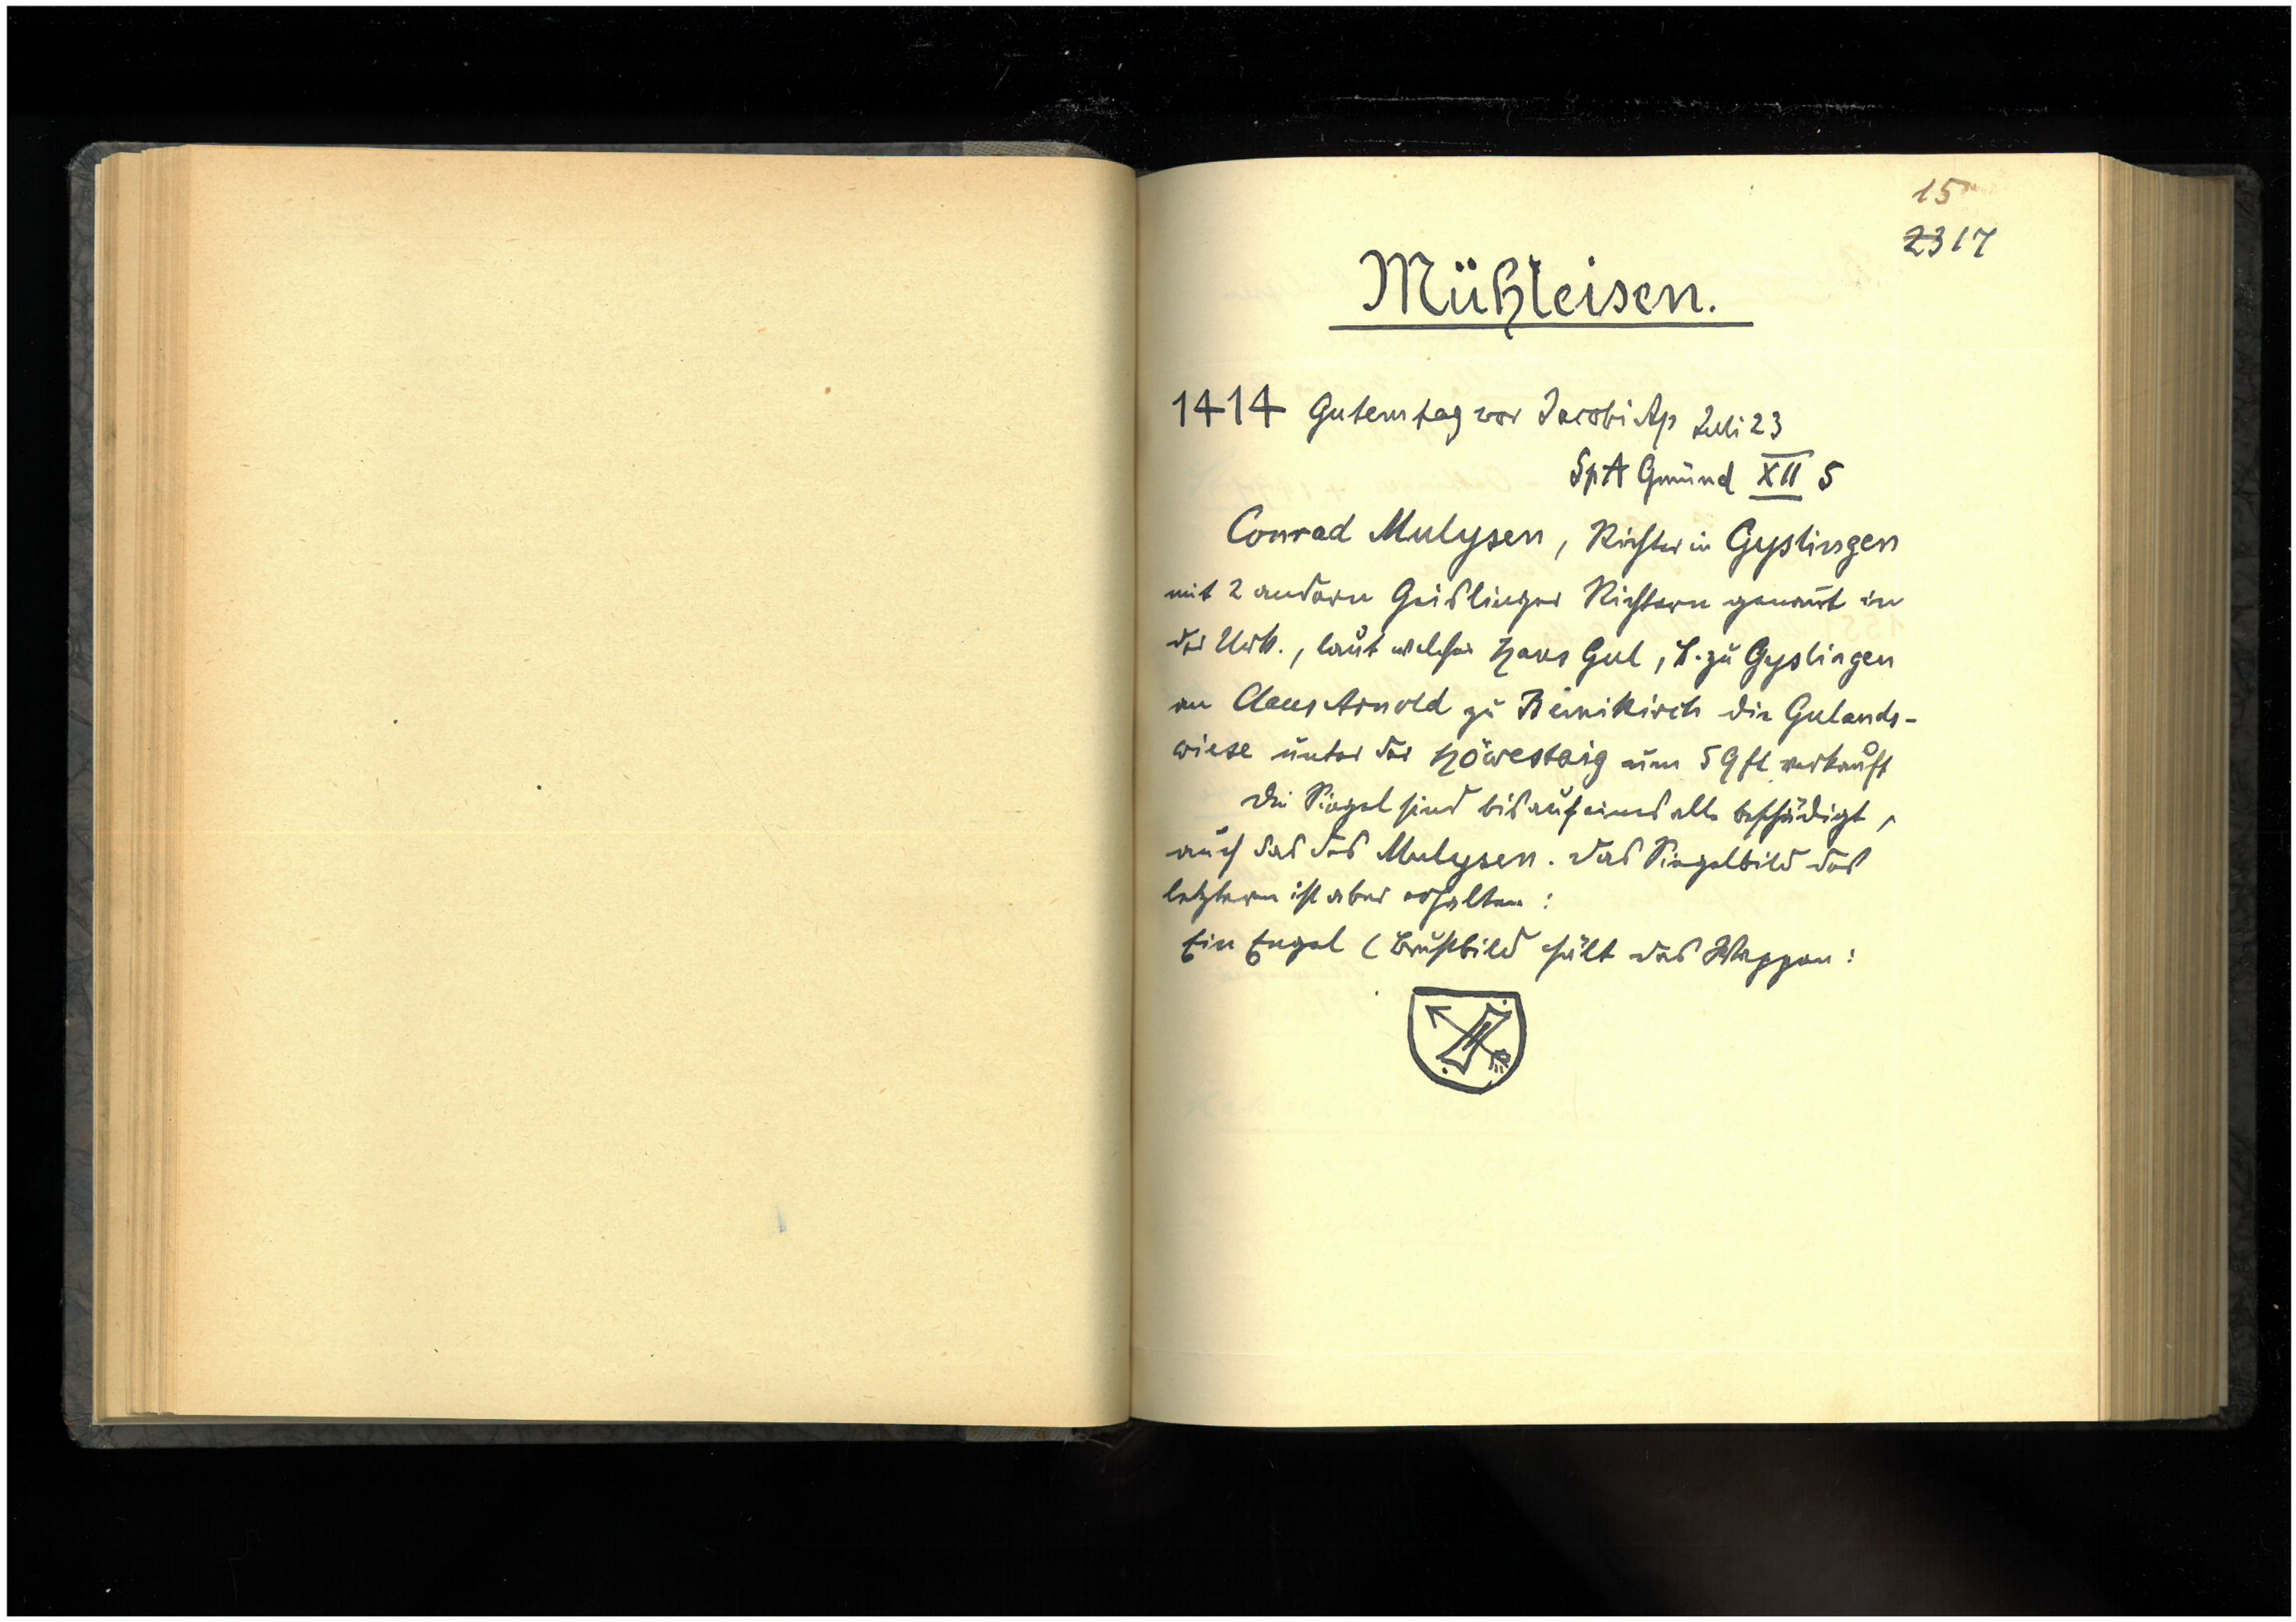 15
23 17
Mühleisen.
1414 Gutemtag vor Jacobi Ap Juli 23
SpA Gmünd XII 5
Conrad Mulysen, Richter in Gyslingen
mit 2 andern Geislinger Richtern genannt in
der Urk., laut welcher Hans Gul, B. zu Gyslingen
an Claus Arnold zu Beinikirch die Gulands-
wiese unter der Höwestaig um 59 fl verkauft
Die Siegel sind bis auf eines alle beschädigt,
auch das des Mulysen. Das Siegelbild des
letztern ist aber erhalten:
Ein Engel (Brustbild hält das Wappen: